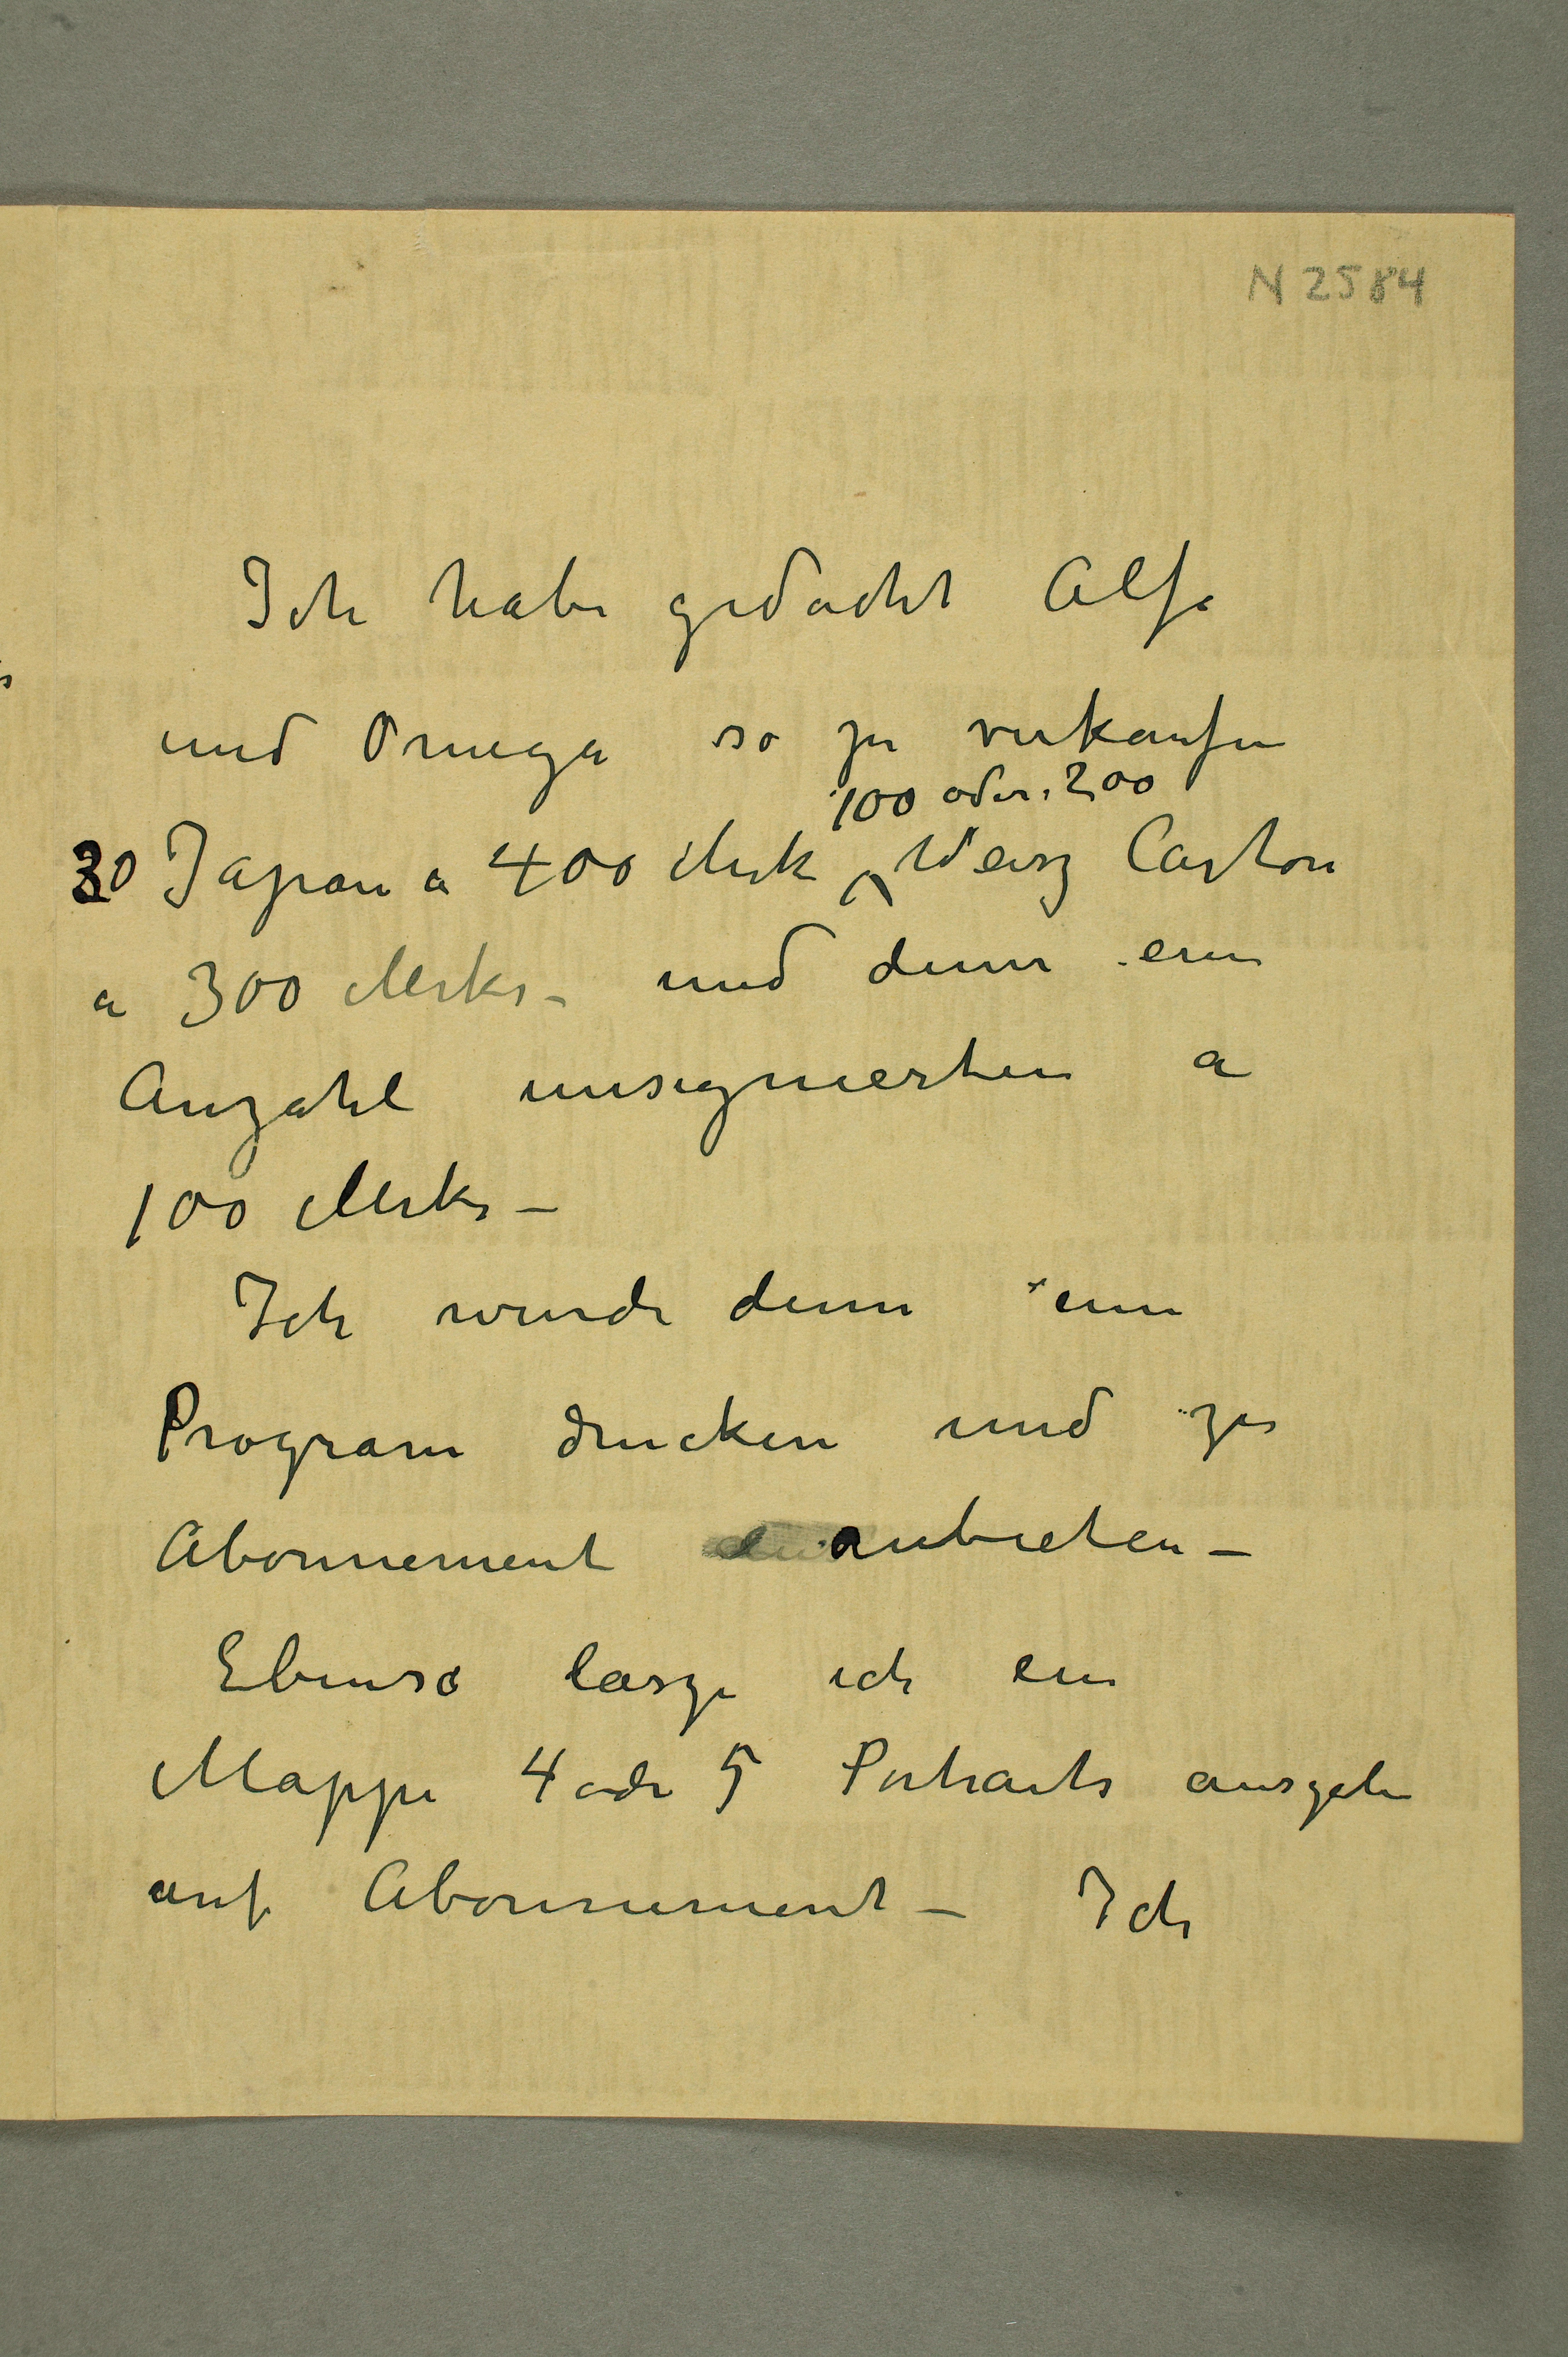 N 2584
Ich habe gedacht Alfa
und Omega so zu verkaufen
100 oder 200
30 Japan a 400 Mrk Weisz Carton
a 300 Mrks – und denn ein
Anzahl unsignierten a
100 Mrks –
Ich wurde denn ein
Program drucken und zu
Abonnement anbieten –
Ebenso lasze ich ein
Mappe 4 oder 5 Portraits ausgeben
auf Abonnement – Ich